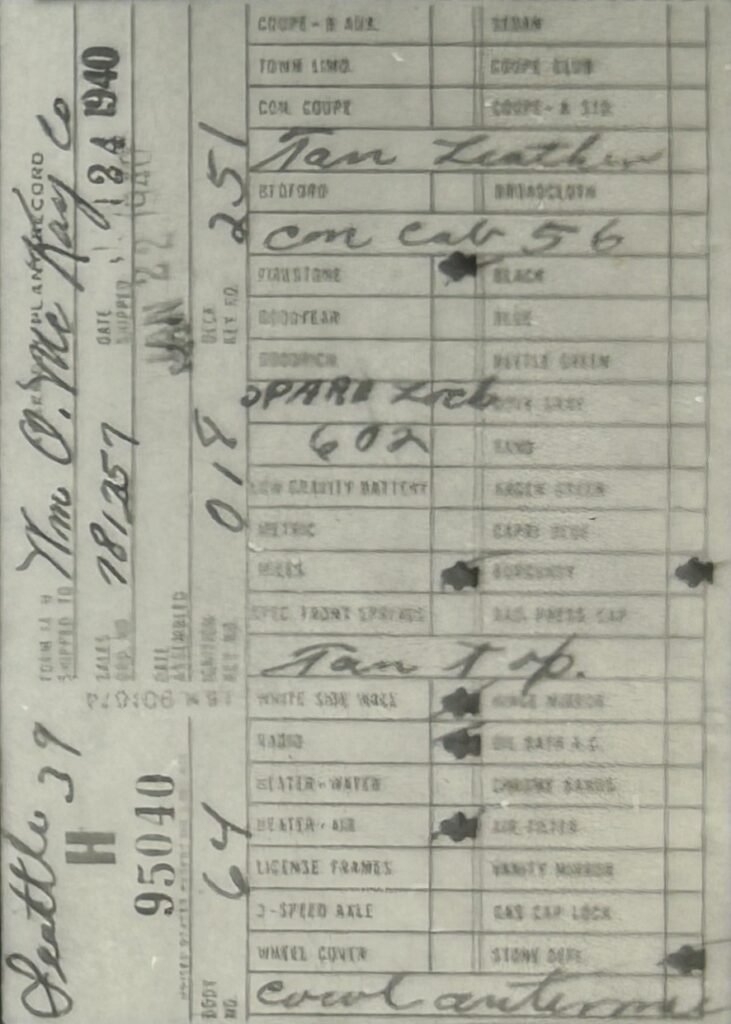 Seattle 39
H
95040
BODY NO. 64
FORM SA 9 PLANT RECORD
SHIPPED TO Wm O. McKay Co
SALES ORD. NO. 781257
DATE SHIPPED 1940
DATE ASSEMBLED JAN 22 1940
IGNITION KEY NO. 018
DECK KEY NO. 251
COUPE-N AUX. SEDAN
TOWN LIMO. COUPE CLUB
CON. COUPE COUPE-N STD
Tan Leather
BEDFORD BROADCLOTH
con cab 56
FIRESTONE BLACK
GOODYEAR BLUE
GOODRICH GREEN
SPARE Lock GRAY
602 SAND
LOW GRAVITY BATTERY GREEN
METRIC CAPRI BLUE
MILES BURGUNDY
SPEC FRONT SPRINGS RAD PRESS CAP
Tan Top.
WHITE SIDE WALL HINGE MIRROR
RADIO OIL BATH A.C.
HEATER-WATER CHROME BANDS
HEATER-AIR AIR FILTER
LICENSE FRAMES VANITY MIRROR
2-SPEED AXLE GAS CAP LOCK
WHEEL COVER STONE DEFL
cowl antenna